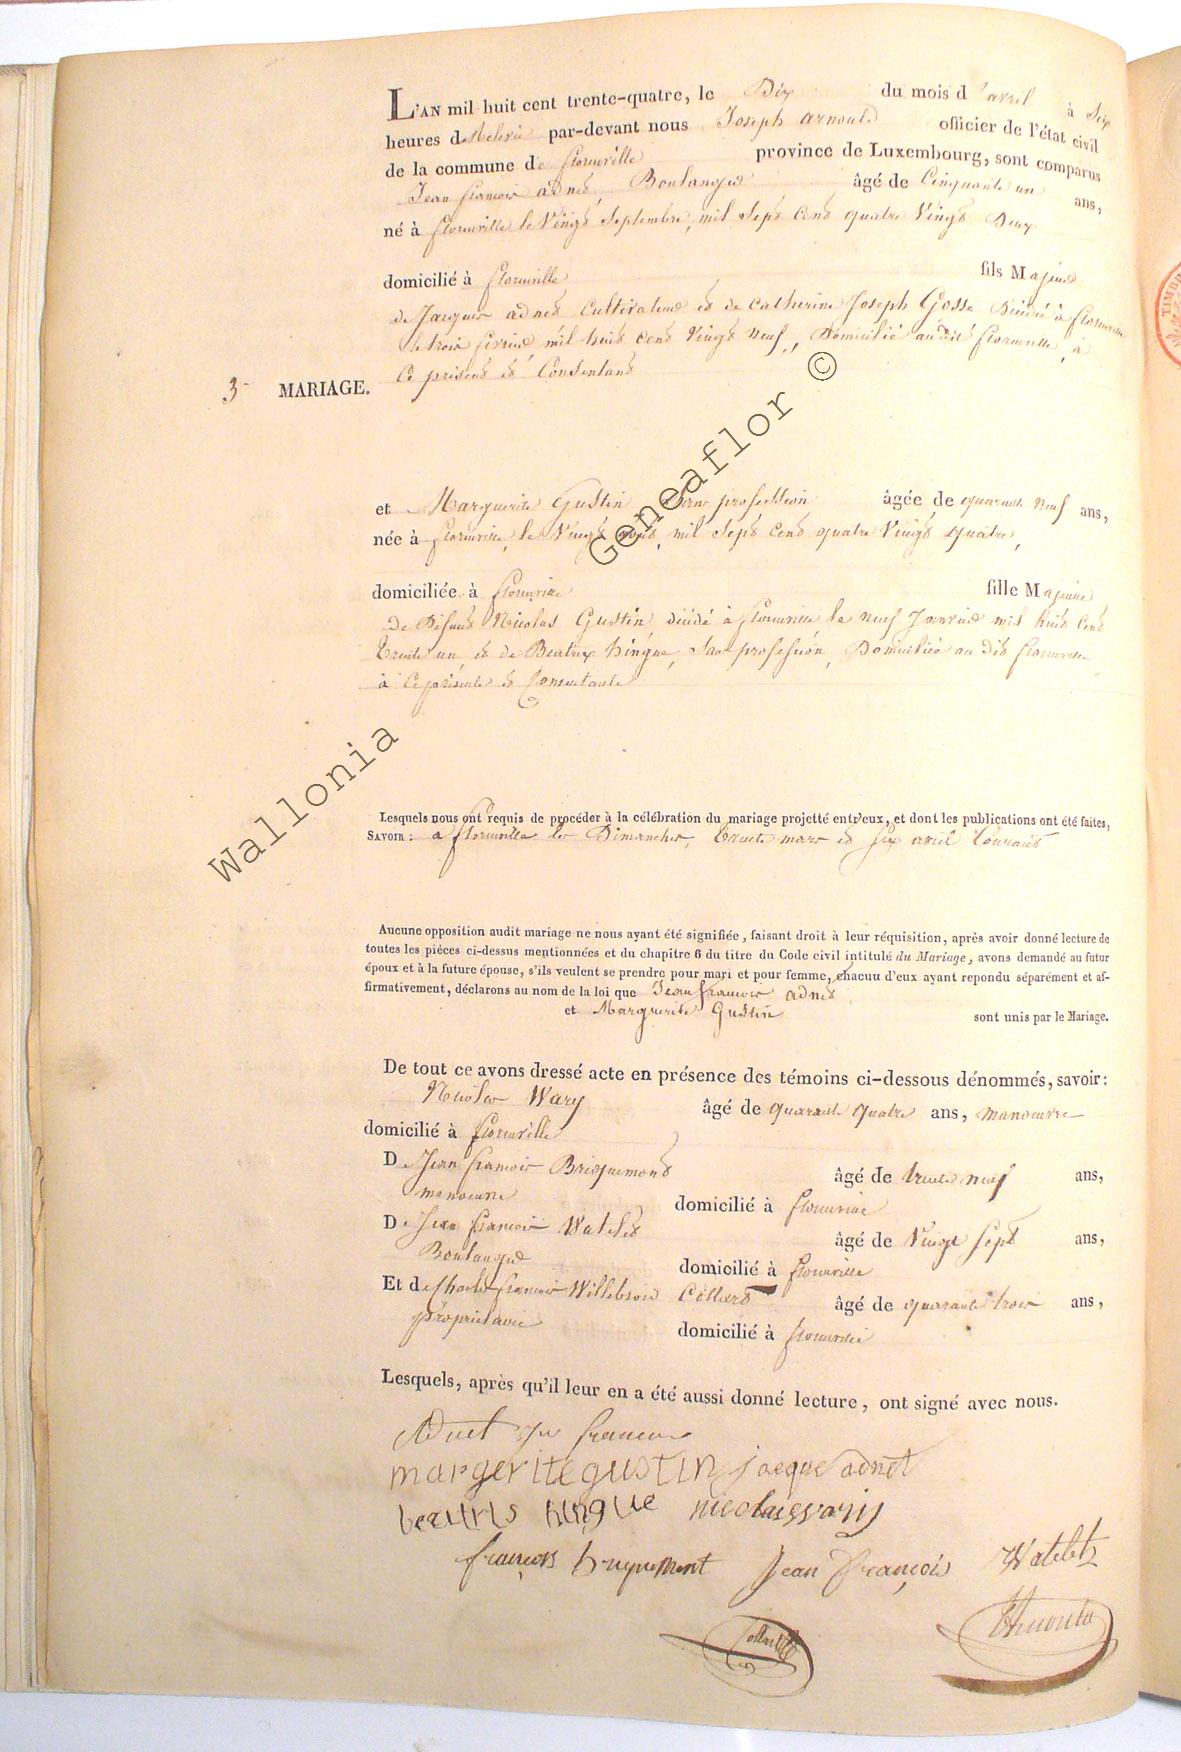 L'AN mil huit cent trente-quatre, le Dix du mois d'avril à Six
heures d par-devant nous Joseph arnould officier de l'état civil
de la commune de florenville province de Luxembourg, sont comparus
Jean françois adnet, Boulanger âgé de Cinquante un ans,
né à florenville le Vingt Septembre, mil Sept Cent quatre Vingt Deux
domicilié à florenville fils Majeur
de Jacques adnet Cultivateur et de Catherine Joseph Gosse Décédé à florenville
le trois février mil huit Cent Vingt neuf, Domicilié au dit florenville, à
Ce présent et Consentant
3 MARIAGE.
et Marguerite Gustin Sans profession âgée de quarante neuf ans,
née à florenville, le Vingt mil Sept Cent quatre Vingt quatre,
domiciliée à florenville fille Majeure
De Défunt Nicolas Gustin décédé à florenville le neuf Janvier mil huit Cent
trente un et de Beatrix hingue, Sans profession, Domiciliée au Dit florenville
à Ce présente et Consentante
Lesquels nous ont requis de procéder à la célébration du mariage projetté entr'eux, et dont les publications ont été faites,
SAVOIR : a florenville les Dimanches, trente mars et Six avril Courant
Aucune opposition audit mariage ne nous ayant été signifiée, faisant droit à leur réquisition, après avoir donné lecture de
toutes les pièces ci-dessus mentionnées et du chapitre 6 du titre du Code civil intitulé du Mariage, avons demandé au futur
époux et à la future épouse, s'ils veulent se prendre pour mari et pour femme, chacuu d'eux ayant repondu séparément et af-
firmativement, déclarons au nom de la loi que Jean françois adnet
et Marguerite Gustin sont unis par le Mariage.
De tout ce avons dressé acte en présence des témoins ci-dessous dénommés, savoir:
Nicolas Wary âgé de quarante quatre ans, manoeuvre
domicilié à florenville
De Jean françois Briquemont âgé de trente neuf ans,
manoeuvre domicilié à florenville
De Jean françois Watelet âgé de Vingt Sept ans,
Boulanger domicilié à florenville
Et de Charles françois Willebrord Collard âgé de quarante trois ans,
propriétaire domicilié à florenville
Lesquels, après qu'il leur en a été aussi donné lecture, ont signé avec nous.
Adnet jn francois
margerite gustin jacque adnet
beatris hingue nicolas wary
françois briquemont Jean françois Watelet
Collard Arnould
Wallonia Geneaflor ©
TIMBRE